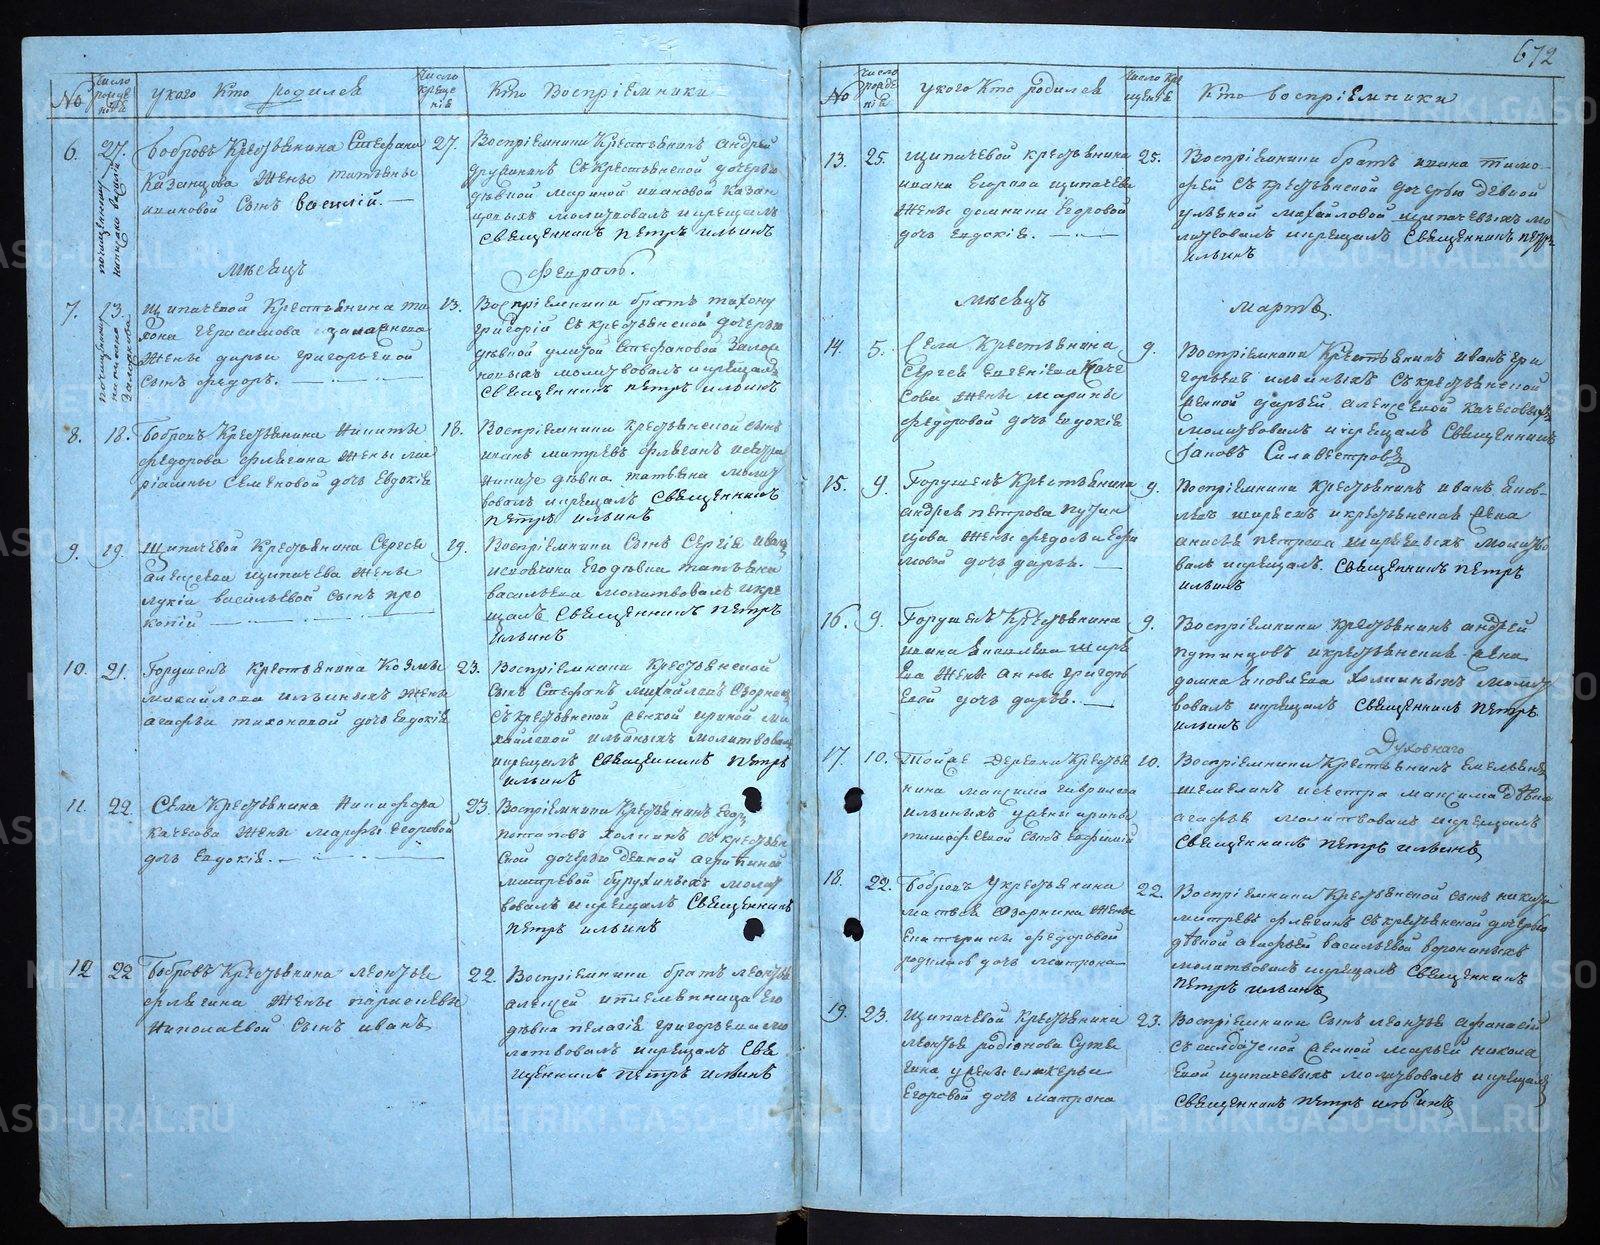 №
Число рождѣнiѣ
укого Кто родился
Число крещенiѣ
Кто Воспрiѣмники
6.
27.
Бобровъ Крестьянина Стефана
Казанцова Жены татьяны
ивановой Сынъ василiй.
27.
Воспрiѣмники Крестьянинъ андрей
Съ Крестьянской дочерью
дѣвкой мариной ивановой Казан
цовыхъ молитвовалъ и крещалъ
Священникъ пѣтръ ильинъ
почищенному написано василiй
Мѣсецъ
Февраль.
7.
13.
Щипачевой Крестьянина ти
хона Герасимова
Жены дарьи григорьевой
сынъ федоръ.
13.
Воспрiѣмники братъ тихону
григорiй Съ крестьянской дочерью
дѣвкой улитой Стефановой
молитвовалъ и крещалъ
Священникъ пѣтръ ильинъ
почищенному написано
8.
18.
Бобровъ Крестьянина Никиты
федорова флягина Жены ма
рiамны Семеновой дочь Евдокiя
18.
Воспрiѣмники крестьянской сынъ
иванъ митревъ флягинъ исестра
никите дѣвка татьяна молит
вовалъ икрещалъ Священникъ
пѣтръ ильинъ
9.
19.
Щипачевой Крестьянина Сергея
алексеева щипачева Жены
лукiи васильевой сынъ про
копiй
19.
Воспрiѣмники Сынъ Сергiя иванъ
его дѣвка татьяна
васильева молитвовалъ икре
щалъ Священникъ пѣтръ
ильинъ
10.
21.
Горушекъ Крестьянина Козмы
михайлова ильиныхъ Жены
агафьи тихоновой дочь евдокiя
23.
Воспрiѣмники Крестьянской
сынъ Стефанъ михайловъ Озорнинъ
съ крестьянской девкой ириной ми
хайловой ильиныхъ молитвовалъ
икрещалъ Священникъ пѣтръ
ильинъ
11.
22.
Села Крестьянина Никифора
качесова Жены Марфы Егоровой
дочь евдокiя.
23
Воспрiѣмники Крестьянинъ Егоръ
потаповъ Холкинъ съ крестьян
ской дочерью девкой агрипиной
митревой бурухиныхъ молит
вовалъ икрещалъ Священникъ
пѣтръ ильинъ
12
22
Бобровъ Крестьянина леонтья
флягина Жены парасковьи
Николаевой сынъ иванъ
22.
Воспрiѣмники братъ леонтья
алексей иплемянница его
дѣвка пелагiя григорьева мо
литвовалъ икрещалъ Свя
щенникъ пѣтръ ильинъ
672
№
Число рождѣнiѣ
укого Кто родился
Число крещенiя
Кто воспрiѣмники
13.
25.
Щипачевой крестьянина
ивана Егорова щипачева
Жены домники Федоровой
дочь евдокiя.
25.
Воспрiѣмники братъ ивана тимо
фей съ крестьянской дочерью девкой
ульяной михайловой щипачевыхъ мо
литвовалъ икрещалъ Священникъ пѣтръ
ильинъ
Мѣсецъ
мартъ.
14.
5.
Села Крестьянина
Сергея Евгенiева Каче
сова Жены марины
федоровой дочь евдокiя
9.
Воспрiѣмники Крестьянинъ иванъ гри
горьевъ ильиныхъ съ крестьянской
женкой дарьей алексеевой качесовыхъ
молитвовалъ икрещалъ Священникъ
Iаковъ Силавестровъ
15.
9.
Горушекъ Крестьянина
андрея петрова путин
цова Жены федосьи ефи
мовой дочь дарья.
9.
Воспрiѣмники крестьянинъ иванъ яков
левъ ширяевъ икрестьянская жена
анисья петрова ширяевыхъ молитво
валъ икрещалъ. Священникъ пѣтръ
ильинъ
16.
9.
Горушекъ Крестьянина
ивана яковлева ширя
ева Жены анны григорь
евой дочь дарья.
9.
Воспрiѣмники крестьянинъ андрей
путинцовъ икрестьянская жена
домна яковлева Холкиныхъ молит
вовалъ икрещалъ Священникъ пѣтръ
ильинъ
17.
10.
Тойже деревни Крестья
нина максима гаврилова
ильиныхъ ужены ирины
тимофеевой сынъ евфимiй
10.
Духовнаго
Воспрiѣмники Крестьянинъ Емельянъ
шемелинъ исестра максима девка
агафья молитвовалъ икрещалъ
Священникъ пѣтръ ильинъ
18.
22.
Бобровъ Укрестьянина
матвея Озорнина Жены
екатерины федоровой
родилась дочь матрона
22.
Воспрiѣмники Крестьянской сынъ никита
митревъ флягинъ съ крестьянской дочерью
дѣвкой агафьей васильевой ворониныхъ
молитвовалъ икрещалъ Священникъ
пѣтръ ильинъ
19.
23.
Щипачевой крестьянина
леонтья родiонова Суже
гина ужены гликерьи
Егоровой дочь матрона
23.
Воспрiѣмники Сынъ леонтья афанасiй
съ солдатской женкой марьей никола
евой щипачевыхъ молитвовалъ икрещалъ
Священникъ пѣтръ ильинъ
METRIKI.GASO-URAL.RU